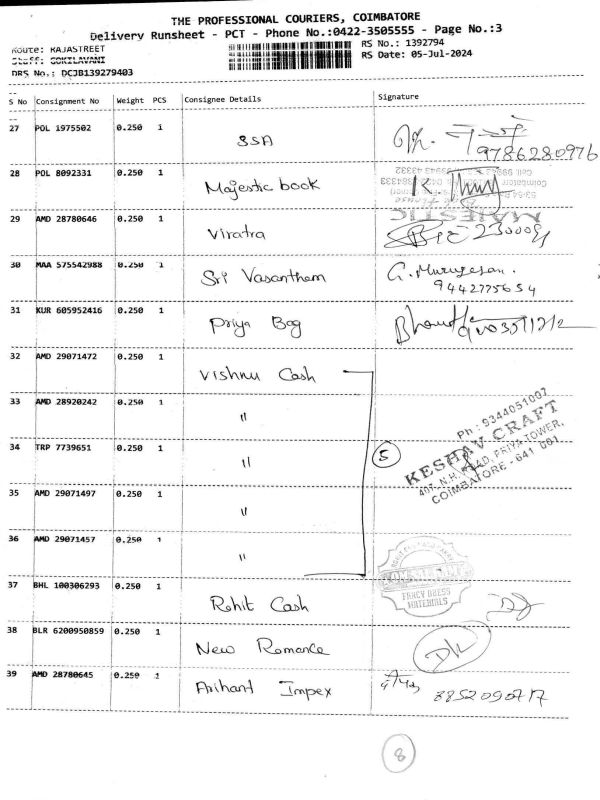 THE PROFESSIONAL COURIERS, COIMBATORE
Delivery Runsheet - PCT - Phone No.:0422-3505555 - Page No.:3
Route: RAJASTREET
RS No.: 1392794
Staff: GOKILAVANI
RS Date: 05-Jul-2024
DRS No.: DCJB139279403
S No Consignment No Weight PCS Consignee Details Signature
27 POL 1975502 0.250 1 SSA
9786280976
28 POL 8092331 0.250 1 Majestic book
MAJESTIC
29 AMD 28780646 0.250 1 Viratra
30 MAA 575542988 0.250 1 Sri Vasantham G. Murugesan.
9442775654
31 KUR 605952416 0.250 1 Priya Bag
32 AMD 29071472 0.250 1 Vishnu Cash
33 AMD 28920242 0.250 1 "
34 TRP 7739651 0.250 1 "
5
Ph : 9344051007
KESHAV CRAFT
PRIYA TOWER,
COIMBATORE - 641 001
35 AMD 29071497 0.250 1 "
36 AMD 29071457 0.250 1 "
FANCY DRESS
MATERIALS
37 BHL 100306293 0.250 1 Rohit Cash
38 BLR 6200950859 0.250 1 New Romance DK
39 AMD 28780645 0.250 1 Arihant Impex
8